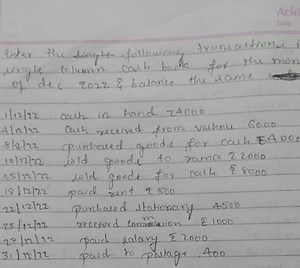 Enter the single following Transactions i
single column cash book for the mon
of dec 2022 & balance the same
1/12/22 cash in hand 74000
4/12/22 cash received from vishnu 6000
8/12/22 purchased goods for cash ₹4000
10/12/22 sold goods to rama ₹2000
15/12/22 sold goods for cash ₹8000
18/12/22 paid rent ₹500
22/12/22 purchased stationary 4500
25/12/22 received commission ₹1000
27/12/22 paid salary ₹2000
31/12/22 paid to postage 400